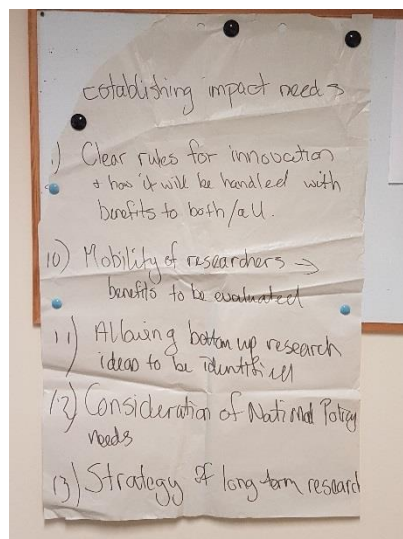 establishing impact needs
.) Clear rules for innovation
+ how it will be handled with
benefits to both/all.
10) Mobility of researchers →
benefits to be evaluated
11) Allowing bottom up research
ideas to be identified
12) Consideration of National Policy
needs
13) Strategy of long term research